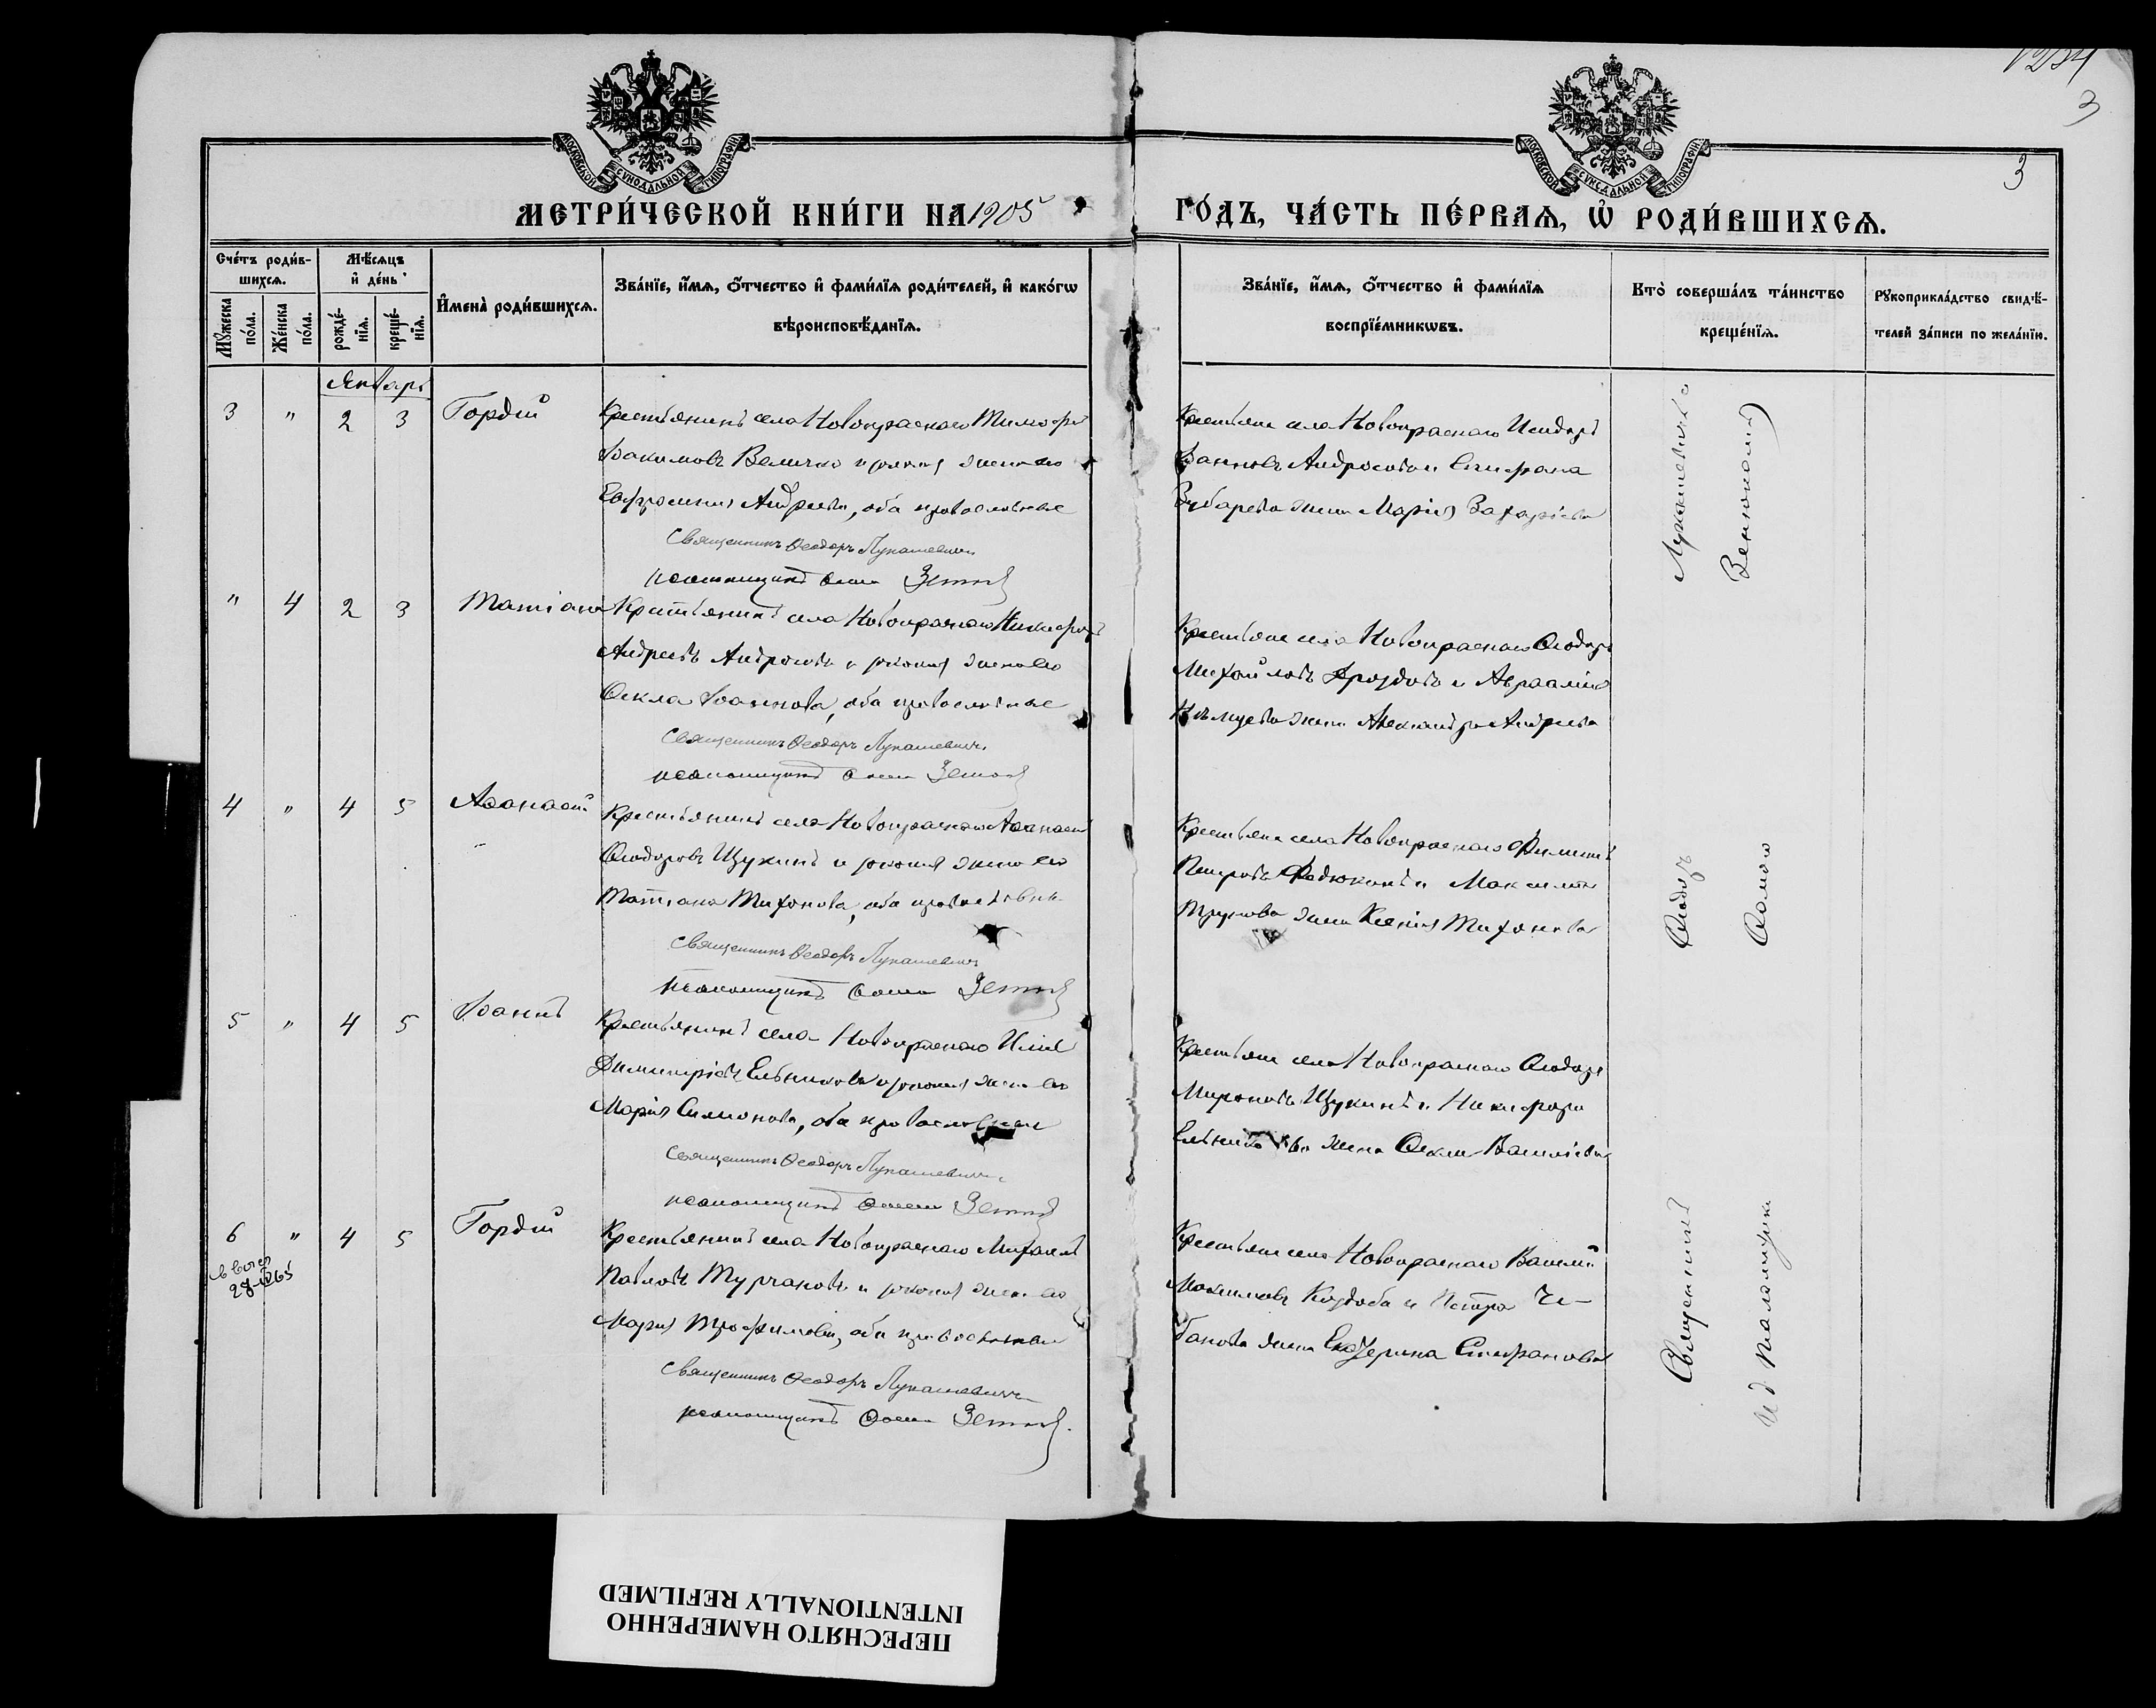 3
3
МОСКОВСКОЙ СУНОДАЛЬНОЙ ТИПОГРАФІИ
МОСКОВСКОЙ СУНОДАЛЬНОЙ ТИПОГРАФІИ
МЕТРИ́ЧЕСКОЙ КНИ́ГИ НА 1905
ГО́ДЪ, ЧА́СТЬ ПЕ́РВАѦ, Ѡ РОДИ́ВШИХСѦ.
Сче́тъ роди́в-
шихсѧ.
Мꙋ́жеска по́ла.
Же́нска по́ла.
Мѣ́сѧцъ
и҆ де́нь
рожде́-нїѧ.
креще́-нїѧ.
И҆мена̀ роди́вшихсѧ.
Зва́нїе, и҆́мѧ, ѻ҆́тчество и҆ фами́лїѧ роди́телей, и҆ како́гѡ
вѣроисповѣ́данїѧ.
Зва́нїе, и҆́мѧ, ѻ҆́тчество и҆ фами́лїѧ
воспрїе́мникѡвъ.
Кто̀ соверша́лъ та́инство
креще́нїѧ.
Рꙋкоприкла́дство свидѣ́-
телей за́писи по жела́нїю.
Январь
3 " 2 3 Гордій
Крестьянинъ села Новокраснаго Тимофей
Іоакимовъ Величко и законная жена его
Евфросинія Андреева, оба православные
Священникъ Ѳеодоръ Лукашевичъ
псаломщикъ Ѳома
Крестьяне села Новокраснаго Исидоръ
Іоанновъ Андросовъ и Стефана
Зубарева жена Марія Захаріева
" 4 2 3 Татіана
Крестьянинъ села Новокраснаго Никифоръ
Андреевъ Андросовъ и законная жена его
Ѳекла Іоаннова, оба православные
Священникъ Ѳеодоръ Лукашевичъ
псаломщикъ Ѳома
Крестьяне села Новокраснаго Ѳеодоръ
Михайловъ Дроздовъ и Авраамія
жена Александра Андреева
4 " 4 5 Аѳанасій
Крестьянинъ села Новокраснаго Аѳанасій
Ѳеодоровъ Щукинъ и законная жена его
Татіана Тихонова, оба православные
Священникъ Ѳеодоръ Лукашевичъ
псаломщикъ Ѳома
Крестьяне села Новокраснаго Филиппъ
Петровъ Федюкинъ и Максима
жена Ксенія Тихонова
5 " 4 5 Іоаннъ
Крестьянинъ села Новокраснаго Илія
Димитріевъ Ельниковъ и законная жена его
Марія Симонова, оба православные
Священникъ Ѳеодоръ Лукашевичъ
псаломщикъ Ѳома
Крестьяне села Новокраснаго Ѳеодоръ
Мироновъ Щукинъ и Никифора
Ельникова жена Ѳекла Василіева
6 " 4 5 Гордій
Крестьянинъ села Новокраснаго Михаилъ
Павловъ Турчановъ и законная жена его
Марія Трофимова, оба православные
Священникъ Ѳеодоръ Лукашевичъ
псаломщикъ Ѳома
Крестьяне села Новокраснаго Василій
Максимовъ Коздоба и Петра Че-
банова жена Екатерина Стефанова
Священникъ Ѳеодоръ Лукашевичъ
И д псаломщика Ѳома
ПЕРЕСНЯТО НАМЕРЕННО
INTENTIONALLY REFILMED